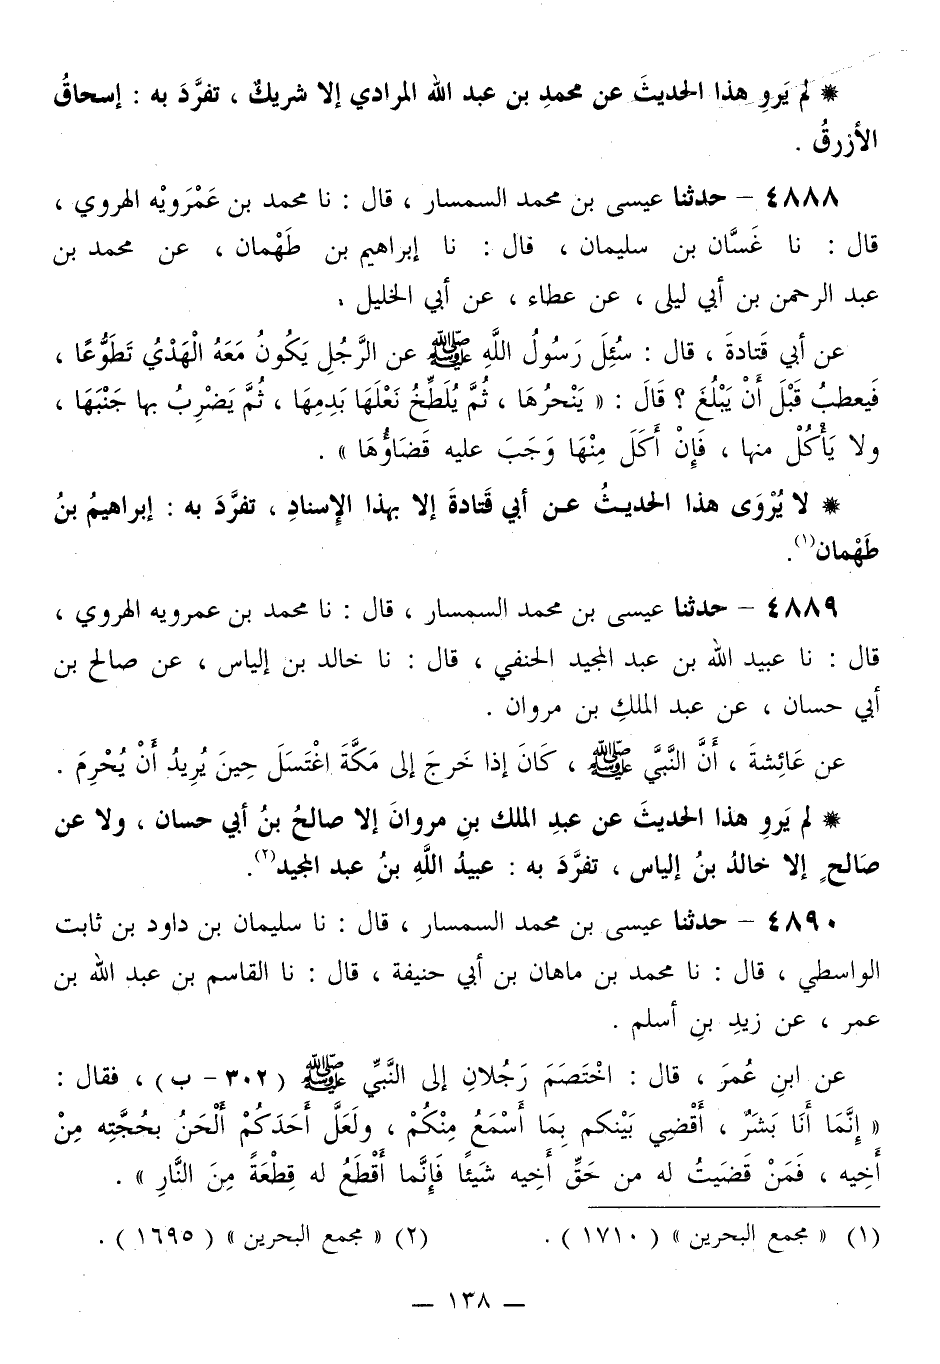 * لم يَروِ هذا الحديثَ عن محمدِ بن عبد الله المرادي إلا شريكٌ ، تفرَّدَ به : إسحاقُ
الأزرقُ .
٤٨٨٨ – حدثنا عيسى بن محمد السمسار ، قال : نا محمد بن عَمْرَويْه الهروي ،
قال : نا غَسَّان بن سليمان ، فال : نا إبراهيم بن طَهْمان ، عن محمد بن
عبد الرحمن بن أبي ليلى ، عن عطاء ، عن أبي الخليل .
عن أبي قَتادةَ ، قال : سُئِلَ رَسُولُ اللَّهِ ﷺ عن الرَّجُلِ يَكُونُ مَعَهُ الْهَدْيُ تَطَوُّعًا ،
فَيعطبُ قَبْلَ أَنْ يَبْلُغَ ؟ قَالَ : « يَنْحُرُهَا ، ثُمَّ يُلَطِّخُ نَعْلَهَا بَدِمِهَا ، ثُمَّ يَضْرِبُ بها جَنْبَهَا ،
ولا يَأْكُلْ منها ، فَإِنْ أَكَلَ مِنْهَا وَجَبَ عليه قَضَاؤُهَا » .
* لا يُرْوَى هذا الحديثُ عن أبي قَتادةَ إلا بهذا الإِسنادِ ، تفرَّدَ به : إبراهيمُ بنُ
طَهْمان(١).
٤٨٨٩ – حدثنا عيسى بن محمد السمسار ، قال : نا محمد بن عمرويه الهروي ،
قال : نا عبيد الله بن عبد المجيد الحنفي ، قال : نا خالد بن إلياس ، عن صالح بن
أبي حسان ، عن عبد الملكِ بن مروان .
عن عَائِشةَ ، أَنَّ النَّبيَّ ﷺ ، كَانَ إذا خَرجَ إلى مَكَّةَ اغْتَسَلَ حِينَ يُرِيدُ أَنْ يُحْرِمَ .
* لم يَروِ هذا الحديثَ عن عبدِ الملك بنِ مروانَ إلا صالحُ بنُ أبي حسان ، ولا عن
صَالحٍ إلا خالدُ بنُ إلياس ، تفرَّدَ به : عبيدُ اللَّهِ بنُ عبد المجيد(٢).
٤٨٩٠ – حدثنا عيسى بن محمد السمسار ، قال : نا سليمان بن داود بن ثابت
الواسطي ، قال : نا محمد بن ماهان بن أبي حنيفة ، قال : نا القاسم بن عبد الله بن
عمر ، عن زيدِ بنِ أسلم .
عن ابنِ عُمرَ ، قال : اخْتَصَمَ رَجُلانِ إلى النَّبيِّ ﷺ ( ٣٠٢ – ب ) ، فقال :
« إِنَّمَا أَنَا بَشَرٌ ، أَقْضِي بَيْنكم بِمَا أَسْمَعُ مِنْكُمْ ، ولَعَلَّ أَحَدَكُمْ أَلْحَنُ بحُجَّتِه مِنْ
أَخِيه ، فَمَنْ قَضَيتُ له من حَقِّ أَخِيه شَيئًا فَإِنَّما أَقْطَعُ له قِطْعَةً مِنَ النَّارِ » .
(١) « مجمع البحرين » ( ١٧١٠ ) . (٢) « مجمع البحرين » ( ١٦٩٥ ) .
— ١٣٨ —